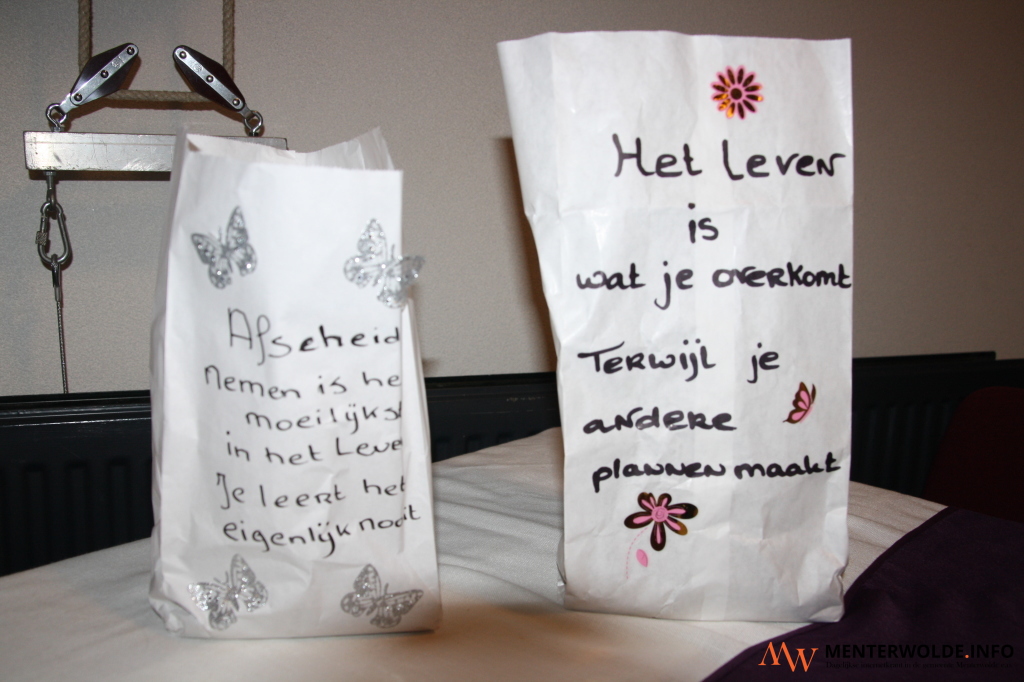 Afscheid
nemen is he
moeilijkst
in het Leve
Je leert het
eigenlijk nooit
Het Leven
is
wat je overkomt
Terwijl je
andere
plannen maakt
MW MENTERWOLDE.INFO